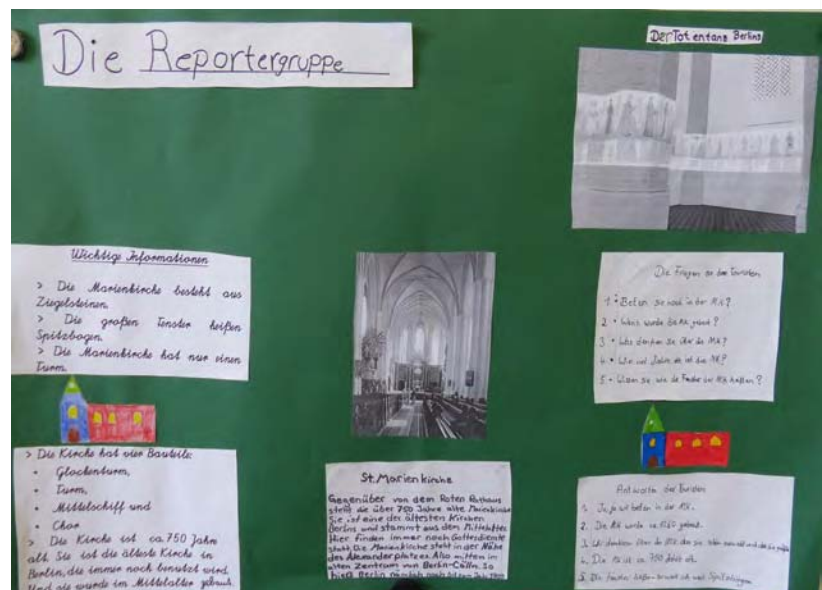 Die Reportergruppe
Der Totentanz Berlins
Wichtige Informationen
> Die Marienkirche besteht aus
Ziegelsteinen.
> Die großen Fenster heißen
Spitzbogen.
> Die Marienkirche hat nur einen
Turm.
> Die Kirche hat vier Bauteile:
• Glockenturm,
• Turm,
• Mittelschiff und
• Chor
> Die Kirche ist ca. 750 Jahre
alt. Sie ist die älteste Kirche in
Berlin, die immer noch benutzt wird.
Und sie wurde im Mittelalter gebaut.
St. Marienkirche
Gegenüber von dem Roten Rathaus
steht die über 750 Jahre alte Marienkirche
Sie ist eine der ältesten Kirchen
Berlins und stammt aus dem Mittelalter
Hier finden immer noch Gottesdienste
statt. Die Marienkirche steht in der Nähe
des Alexanderplatzes. Also mitten im
alten Zentrum von Berlin-Cölln. So
hieß Berlin nämlich noch bis zum Jahr
Die Fragen an den Touristen
1. • Beten sie noch in der MK?
2 • Wann wurde die MK gebaut?
3 • Was denken sie über die MK?
4 • Wie viel Jahre alt ist die MK?
5 • Wissen sie wie die Fenster der MK heißen?
Antworten der Touristen
1. Ja, ja wir beten in der MK.
2. Die MK wurde ca. gebaut.
3. Wir denken über die MK, das sie sehr und das sie
4. Die MK ist ca. 750 Jahre alt.
5. Die Fenster heißen